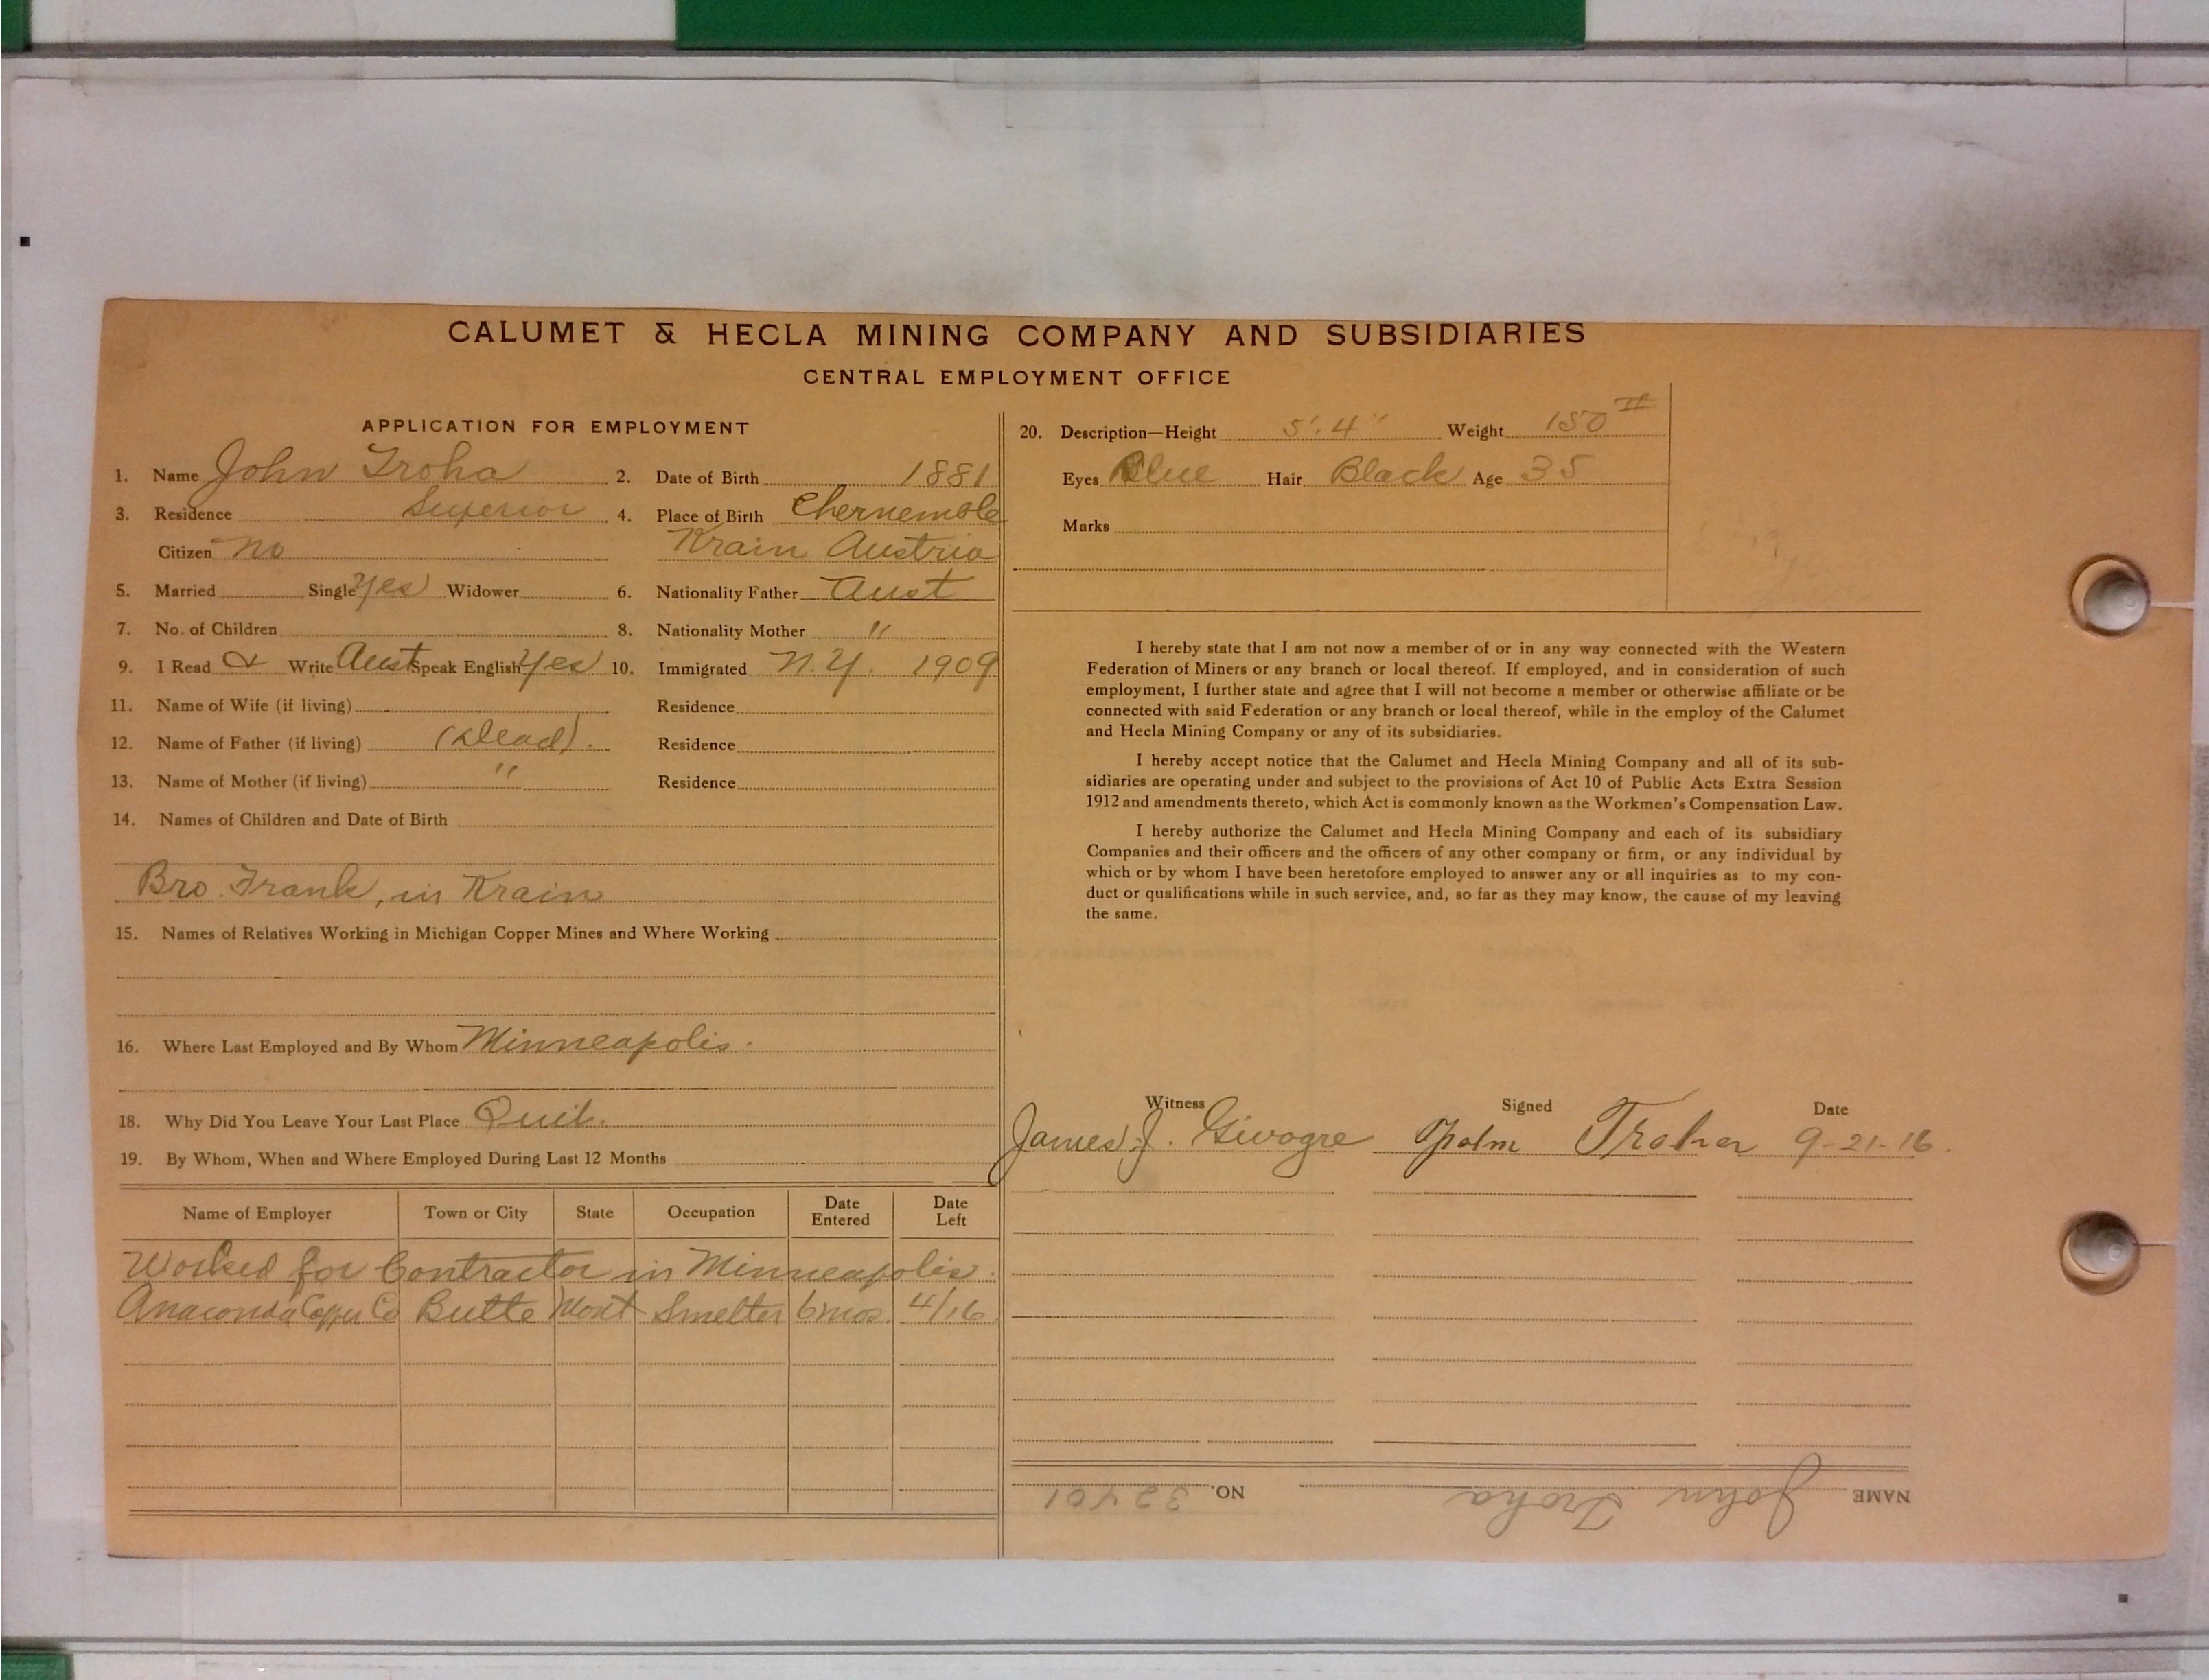 CALUMET & HECLA MINING COMPANY AND SUBSIDIARIES
CENTRAL EMPLOYMENT OFFICE
APPLICATION FOR EMPLOYMENT
1. Name John Troha 2. Date of Birth 1881
3. Residence Superior 4. Place of Birth Chernemble
Citizen No Krain Austria
5. Married Single Yes Widower 6. Nationality Father Aust
7. No. of Children 8. Nationality Mother "
9. I Read & Write Aust Speak English Yes 10. Immigrated N.Y. 1909
11. Name of Wife (if living) Residence
12. Name of Father (if living) (Dead). Residence
13. Name of Mother (if living) " Residence
14. Names of Children and Date of Birth
Bro. Frank, in Krain
15. Names of Relatives Working in Michigan Copper Mines and Where Working
16. Where Last Employed and By Whom Minneapolis.
18. Why Did You Leave Your Last Place Quit.
19. By Whom, When and Where Employed During Last 12 Months
Name of Employer Town or City State Occupation Date Entered Date Left
Worked for Contractor in Minneapolis.
Anaconda Copper Co Butte Mont Smelter 6 mos. 4/16
20. Description—Height 5'. 4" Weight 150 #
Eyes Blue Hair Black Age 35
Marks
I hereby state that I am not now a member of or in any way connected with the Western
Federation of Miners or any branch or local thereof. If employed, and in consideration of such
employment, I further state and agree that I will not become a member or otherwise affiliate or be
connected with said Federation or any branch or local thereof, while in the employ of the Calumet
and Hecla Mining Company or any of its subsidiaries.
I hereby accept notice that the Calumet and Hecla Mining Company and all of its sub-
sidiaries are operating under and subject to the provisions of Act 10 of Public Acts Extra Session
1912 and amendments thereto, which Act is commonly known as the Workmen's Compensation Law.
I hereby authorize the Calumet and Hecla Mining Company and each of its subsidiary
Companies and their officers and the officers of any other company or firm, or any individual by
which or by whom I have been heretofore employed to answer any or all inquiries as to my con-
duct or qualifications while in such service, and, so far as they may know, the cause of my leaving
the same.
Witness Signed Date
James J. Givogre Troha 9-21-16.
NAME John Troha NO. 32401